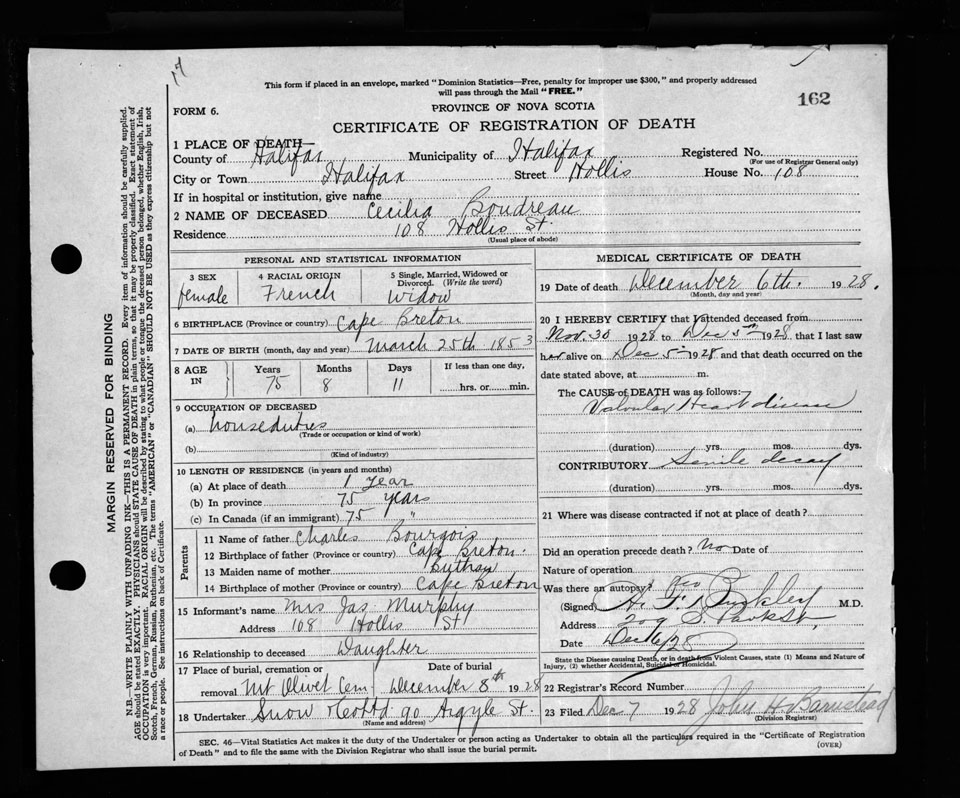 17
This form if placed in an envelope, marked "Dominion Statistics—Free, penalty for improper use $300," and properly addressed
will pass through the Mail "FREE."
162
FORM 6.
PROVINCE OF NOVA SCOTIA
CERTIFICATE OF REGISTRATION OF DEATH
1 PLACE OF DEATH—
County of Halifax Municipality of Halifax Registered No.
(For use of Registrar General only)
City or Town Halifax Street Hollis House No. 108
If in hospital or institution, give name
2 NAME OF DECEASED Cecilia Boudreau
Residence 108 Hollis St.
(Usual place of abode)
PERSONAL AND STATISTICAL INFORMATION
3 SEX female
4 RACIAL ORIGIN French
5 Single, Married, Widowed or
Divorced. (Write the word)
Widow
6 BIRTHPLACE (Province or country) Cape Breton
7 DATE OF BIRTH (month, day and year) March 25th 1853
8 AGE IN
Years 75
Months 8
Days 11
If less than one day,
hrs. or min.
9 OCCUPATION OF DECEASED
(a) houseduties
(Trade or occupation or kind of work)
(b)
(Kind of industry)
10 LENGTH OF RESIDENCE (in years and months)
(a) At place of death 1 year
(b) In province 75 years
(c) In Canada (if an immigrant) 75 "
Parents
11 Name of father Charles Bourgois
12 Birthplace of father (Province or country) Cape Breton.
13 Maiden name of mother
14 Birthplace of mother (Province or country) Cape Breton
15 Informant's name Mrs Jas Murphy
Address 108 Hollis St
16 Relationship to deceased Daughter
17 Place of burial, cremation or Date of burial
removal Mt Olivet Cem December 8th 1928
18 Undertaker Snow & Co Ltd 90 Argyle St.
(Name and address)
MEDICAL CERTIFICATE OF DEATH
19 Date of death December 6th. 1928.
(Month, day and year)
20 I HEREBY CERTIFY that I attended deceased from
Nov. 30 1928 to Dec 5th 1928 that I last saw
her alive on Dec 5th 1928 and that death occurred on the
date stated above, at m.
The CAUSE OF DEATH was as follows:
Valvular Heart disease
(duration) yrs. mos. dys.
CONTRIBUTORY Senile decay
(duration) yrs. mos. dys.
21 Where was disease contracted if not at place of death?
Did an operation precede death? No Date of
Nature of operation
Was there an autopsy?
(Signed) M.D.
Address 209 S. Park St,
Date Dec 6/28
State the Disease causing Death, or in death from Violent Causes, state (1) Means and Nature of
Injury, (2) whether Accidental, Suicidal or Homicidal.
22 Registrar's Record Number
23 Filed Dec 7 1928 John H Barnstead
(Division Registrar)
SEC. 46—Vital Statistics Act makes it the duty of the Undertaker or person acting as Undertaker to obtain all the particulars required in the "Certificate of Registration
of Death" and to file the same with the Division Registrar who shall issue the burial permit.
(OVER)
MARGIN RESERVED FOR BINDING
N.B.—WRITE PLAINLY WITH UNFADING INK—THIS IS A PERMANENT RECORD. Every item of information should be carefully supplied.
AGE should be stated EXACTLY. PHYSICIANS should STATE CAUSE OF DEATH in plain terms, so that it may be properly classified. Exact statement of
OCCUPATION is very important. RACIAL ORIGIN will be described by stating to what people or tongue the deceased person belonged, whether English, Irish,
Scotch, French, German, Russian, Ruthenian, etc. The terms "AMERICAN" or "CANADIAN" SHOULD NOT BE USED as they express citizenship but not
a race or people. See instructions on back of Certificate.